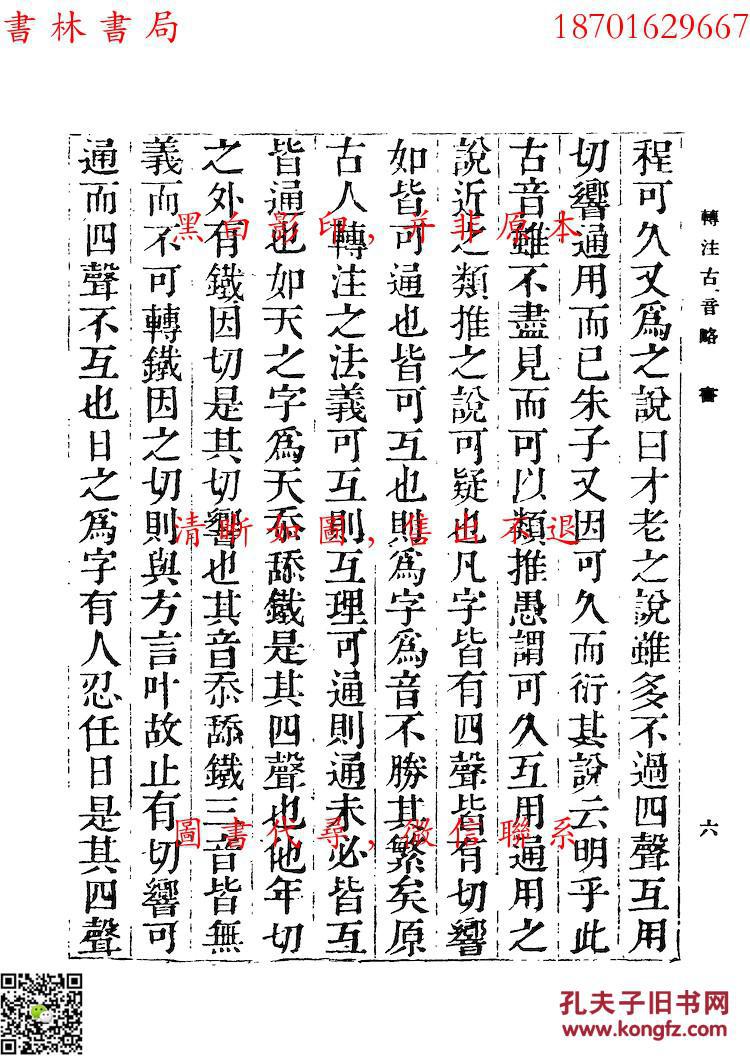 書林書局
18701629667
轉注古音略 書
六
程可久又爲之說曰才老之說雖多不過四聲互用
切響通用而已朱子又因可久而衍其說云明乎此
古音雖不盡見而可以類推愚謂可久互用通用之
說近之類推之說可疑也凡字皆有四聲皆有切響
如皆可通也皆可互也則爲字爲音不勝其繁矣原
古人轉注之法義可互則互理可通則通未必皆互
皆通也如天之字爲天忝舔鐵是其四聲也他年切
之外有鐵因切是其切響也其音忝舔鐵三音皆無
義而不可轉鐵因之切則與方言叶故止有切響可
通而四聲不互也日之爲字有人忍任日是其四聲
黑白影印,并非原本
清晰如圖,售出不退
圖書代尋,微信聯系
孔夫子旧书网
www.kongfz.com